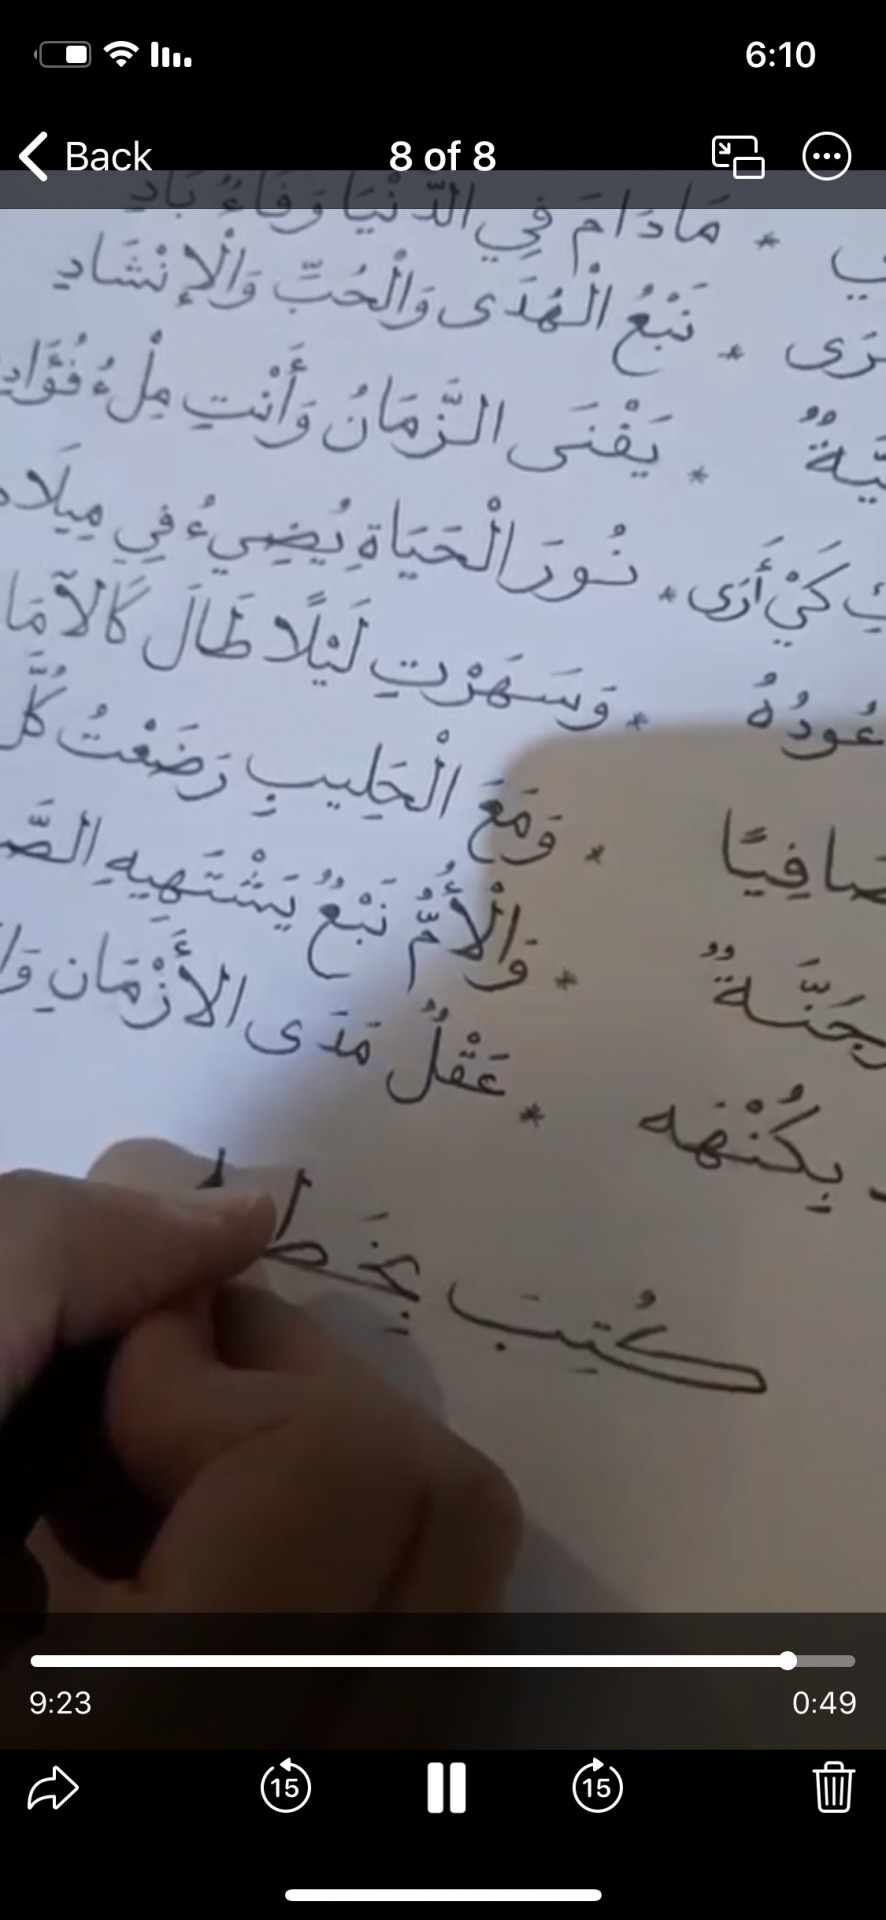 6:10
Back 8 of 8
* مَادَامَ فِي الدُّنْيَا وَفَاءٌ بَادِ
* نَبْعُ الْهُدَى وَالْحُبِّ وَالْإِنْشَادِ
* يَفْنَى الزَّمَانُ وَأَنْتِ مِلْءُ
كَيْ أَرَى * نُورَ الْحَيَاةِ يُضِيءُ فِي
عُودُهُ * وَسَهَرْتِ لَيْلًا طَالَ
* وَمَعَ الْحَلِيبِ رَضَعْتُ
* وَالْأُمُّ نَبْعٌ يَشْتَهِيهِ
بِكُنْهَه * عَقْلٌ مَدَى الأَزْمَانِ
كُتِبَ بِخَط
9:23 0:49
15 15